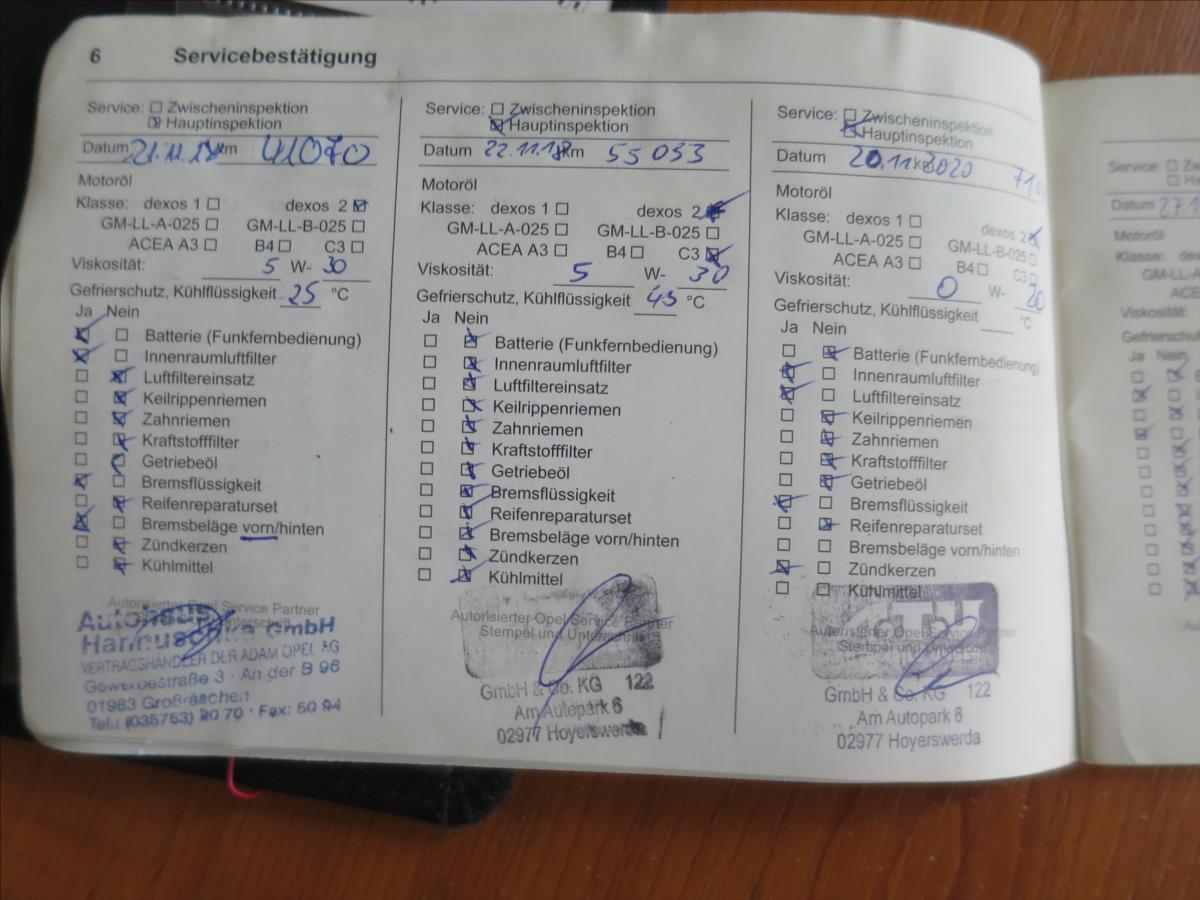 6 Servicebestätigung
Service: Zwischeninspektion
Hauptinspektion
Datum 21.11. km 41070
Motoröl
Klasse: dexos 1 dexos 2
GM-LL-A-025 GM-LL-B-025
ACEA A3 B4 C3
Viskosität: 5 W- 30
Gefrierschutz, Kühlflüssigkeit 25 °C
Ja Nein
Batterie (Funkfernbedienung)
Innenraumluftfilter
Luftfiltereinsatz
Keilrippenriemen
Zahnriemen
Kraftstofffilter
Getriebeöl
Bremsflüssigkeit
Reifenreparaturset
Bremsbeläge vorn/hinten
Zündkerzen
Kühlmittel
Autorisierter Opel Service Partner
Autohaus
GmbH
VERTRAGSHÄNDLER DER ADAM OPEL AG
Gewerbestraße 3 · An der B 96
01983 Großräschen
Tel.: (035753) 20 70 · Fax: 50 94
Service: Zwischeninspektion
Hauptinspektion
Datum 22.11.18 km 55 033
Motoröl
Klasse: dexos 1 dexos 2
GM-LL-A-025 GM-LL-B-025
ACEA A3 B4 C3
Viskosität: 5 W- 30
Gefrierschutz, Kühlflüssigkeit 45 °C
Ja Nein
Batterie (Funkfernbedienung)
Innenraumluftfilter
Luftfiltereinsatz
Keilrippenriemen
Zahnriemen
Kraftstofffilter
Getriebeöl
Bremsflüssigkeit
Reifenreparaturset
Bremsbeläge vorn/hinten
Zündkerzen
Kühlmittel
Autorisierter Opel Service Partner
Stempel und Unterschrift
GmbH & Co. KG 122
Am Autopark 6
02977 Hoyerswerda
Service: Zwischeninspektion
Hauptinspektion
Datum 20.11.2020 km
Motoröl
Klasse: dexos 1 dexos 2
GM-LL-A-025 GM-LL-B-025
ACEA A3 B4 C3
Viskosität: 0 W- 20
Gefrierschutz, Kühlflüssigkeit °C
Ja Nein
Batterie (Funkfernbedienung)
Innenraumluftfilter
Luftfiltereinsatz
Keilrippenriemen
Zahnriemen
Kraftstofffilter
Getriebeöl
Bremsflüssigkeit
Reifenreparaturset
Bremsbeläge vorn/hinten
Zündkerzen
Kühlmittel
Autorisierter Opel Service Partner
Stempel und Unterschrift
GmbH & Co. KG 122
Am Autopark 6
02977 Hoyerswerda
Service:
Datum 27.1
Motoröl
Klasse:
GM-LL-A
ACE
Viskosität:
Gefrierschutz
Ja Nein